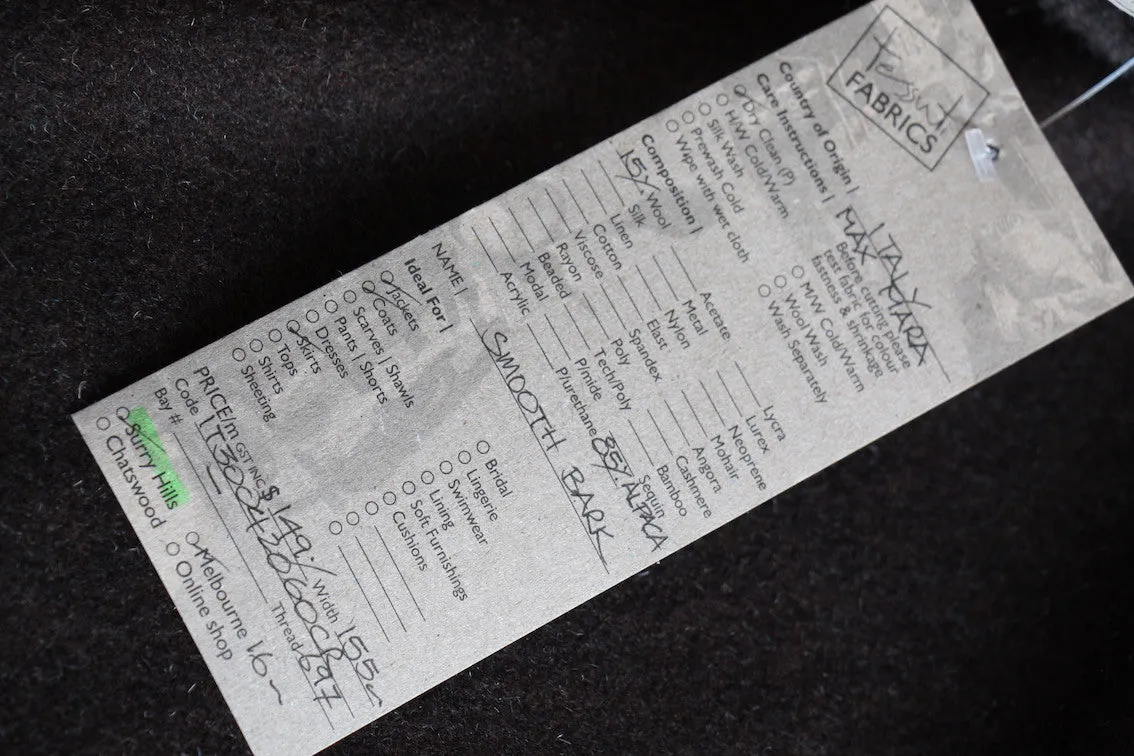 tessuti
FABRICS
Country of Origin | ITALY
MAX MARA
Care Instructions |
Before cutting please
test fabric for colour
fastness & shrinkage
Dry Clean (P)
H/W Cold/Warm
Silk Wash
Prewash Cold
Wipe with wet cloth
M/W Cold/Warm
Wool Wash
Wash Separately
Composition |
15% Wool
Silk
Linen
Cotton
Viscose
Rayon
Beaded
Modal
Acrylic
Acetate
Metal
Nylon
Elast
Spandex
Poly
Tech/Poly
P/mide
P/urethane
Lycra
Lurex
Neoprene
Mohair
Angora
Cashmere
Bamboo
Sequin
85% ALPACA
NAME | SMOOTH BARK
Ideal For |
Jackets
Coats
Scarves | Shawls
Pants | Shorts
Dresses
Skirts
Tops
Shirts
Sheeting
Bridal
Lingerie
Swimwear
Lining
Soft Furnishings
Cushions
PRICE/m GST INC $ 149.- Width 155
Code
Bay # Thread 697
Surry Hills
Chatswood
Melbourne 16m
Online shop